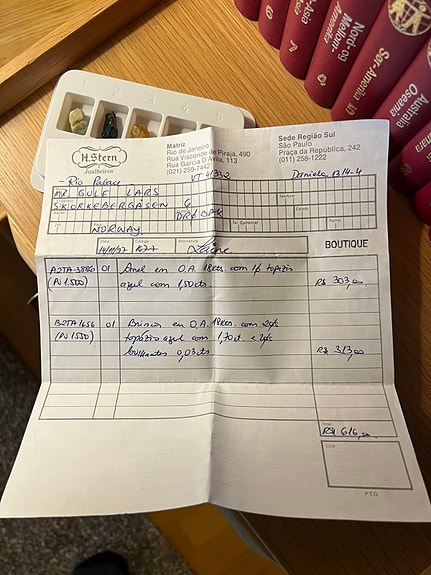 Nord- og
Mellom-
Amerika
Sør-Amerika
10
Australia
Oseania
H.Stern
Joalheiros
Matriz
Rio de Janeiro
Rua Visconde de Pirajá, 490
Rua Garcia D'Ávila, 113
(021) 259-7442
Sede Região Sul
São Paulo
Praça da República, 242
(011) 258-1222
Rio Palace
VT
Daniela 1314-4
MR GULE LARS
SKORKEBERGÅSEN 6
DRØBAK
NORWAY.
BOUTIQUE
Data
Código
Assinatura
A2TA-3886
01
Anel em O.A. 18kts. com 1/ topázio
(PV 1.500)
azul com 1,50cts.
R$ 303,00
B2TA1656
01
Brincos em O.A. 18kts. com 2gfs
topázio azul com 1,70ct. e 2gfs
brilhantes 0,03cts.
R$ 313,00
Total
R$ 616,00
Loja
P.T.O.